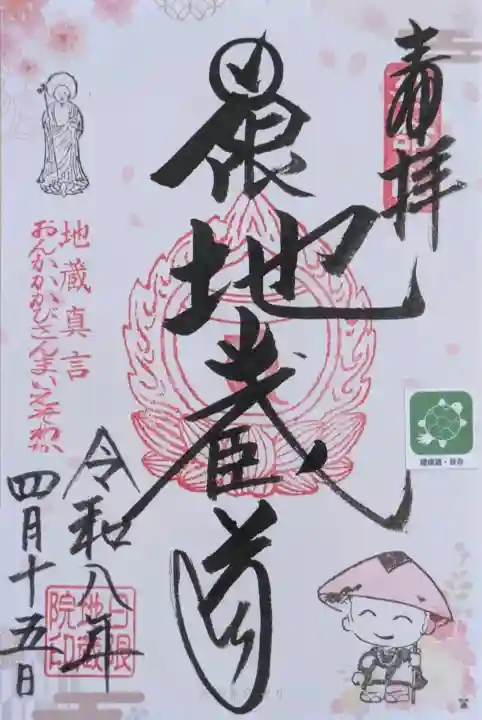 奉拝
日限地蔵尊
地蔵真言
おんかかかびさんまいえそわか
令和八年
四月十五日
日限
地蔵
院印